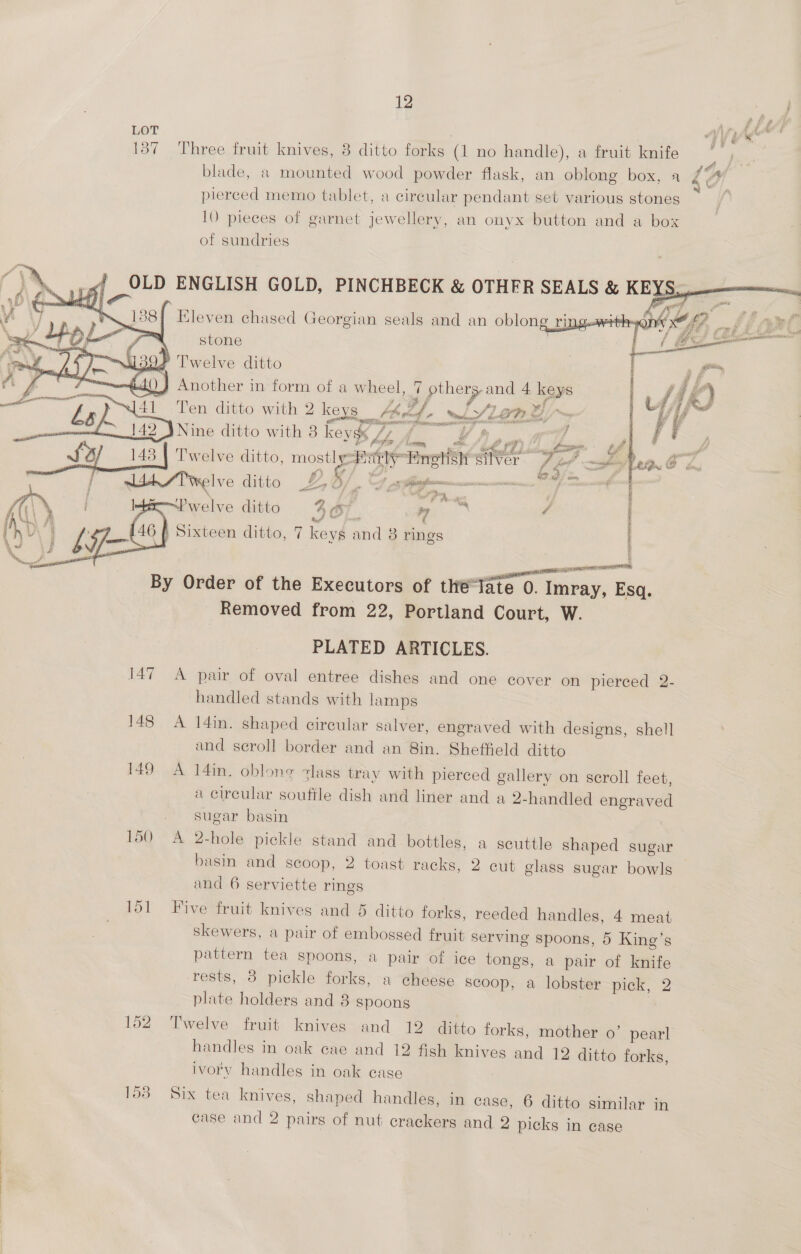 12
LOT
137 Three fruit knives, 3 ditto forks (1 no handle), a fruit knife
blade, a mounted wood powder flask, an oblong box, a
pierced memo tablet, a circular pendant set various stones
10 pieces of garnet jewellery, an onyx button and a box
of sundries
OLD ENGLISH GOLD, PINCHBECK & OTHER SEALS & KEYS.
138 Eleven chased Georgian seals and an oblong ring with onyx
stone
139 Twelve ditto
140 Another in form of a wheel, 7 others and 4 keys
141 Ten ditto with 2 keys
142 Nine ditto with 3 keys
143 Twelve ditto, mostly Early English silver
144 Twelve ditto
145 Twelve ditto
146 Sixteen ditto, 7 keys and 3 rings
By Order of the Executors of the late O. Imray, Esq.
Removed from 22, Portland Court, W.
PLATED ARTICLES.
147 A pair of oval entree dishes and one cover on pierced 2-
handled stands with lamps
148 A 14in. shaped circular salver, engraved with designs, shell
and scroll border and an 8in. Sheffield ditto
149 A 14in. oblong glass tray with pierced gallery on scroll feet,
a circular souffle dish and liner and a 2-handled engraved
sugar basin
150 A 2-hole pickle stand and bottles, a scuttle shaped sugar
basin and scoop, 2 toast racks, 2 cut glass sugar bowls
and 6 serviette rings
151 Five fruit knives and 5 ditto forks, reeded handles, 4 meat
skewers, a pair of embossed fruit serving spoons, 5 King's
pattern tea spoons, a pair of ice tongs, a pair of knife
rests, 3 pickle forks, a cheese scoop, a lobster pick, 2
plate holders and 3 spoons
152 Twelve fruit knives and 12 ditto forks, mother o' pearl
handles in oak cae and 12 fish knives and 12 ditto forks,
ivory handles in oak case
153 Six tea knives, shaped handles, in case, 6 ditto similar in
case and 2 pairs of nut crackers and 2 picks in case